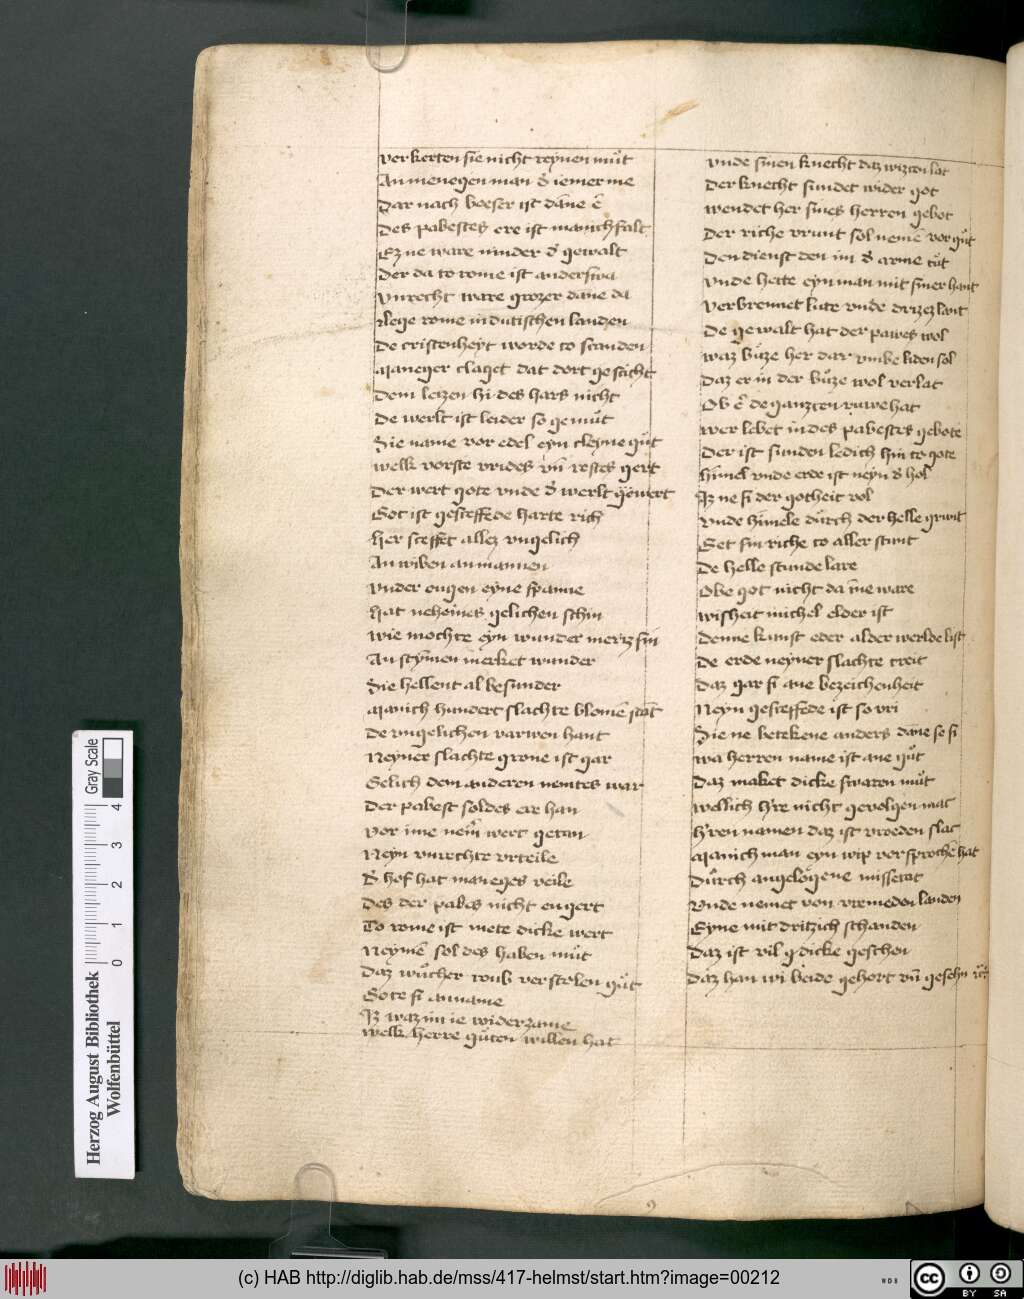 vorkerten sie nicht reynen můt
An menegen man d' iemer me
Dar nach boeser ist dāne ē
Des pabestes ere ist manichfalt
Ez ne ware minder d' gewalt
Der da to rome ist anderswa
Vnrecht ware grozer dane da
Lege rome in dutischen landen
De cristenheyt worde to scanden
Maneger claget dat dort geschicht
Dem lezen hi des hars nicht
De werlt ist leider so gemůt
Sie name vor edel eyn cleyne gůt
Welk vorste vrides vn̄ restes gert
Der wert gote vnde d' werlt gewert
Got ist gescheffede harte rich
Her sceffet allez vngelich
An wiben an mannen
Vnder ougen eyne spanne
Hat neheines gelichen schin
Wie mochte eyn wunder merez sin
An stymen merket wunder
Sie hellent al besunder
Manich hundert slachte blomē stāt
De vngelichen varwen hant
Neyner slachte grone ist gar
Gelich dem anderen nemtes war
Der pabest sol des ere han
Vor ime nem̄ wert getan
Neyn vnrechte vrteile
D' hof hat maneges veile
Des der pabes nicht en gert
To rome ist mete dicke wert
Neymē sol des haben můt
Daz wůcher roub verstolen gůt
Gote si anname
Iz waz im ie widerzame
Welk herre gůten willen hat
Vnde sinen knecht daz wizten lat
Der knecht sundet wider got
Wendet her sines herren gebot
Der riche vrunt sol nemē vor gůt
Den dienst den im d' arme tůt
Vnde hette eyn man mit siner hant
Verbrennet lute vnde drizez lant
De gewalt hat der pawes wol
Waz bůze her dar vmbe liden sol
Daz er in der bůze wol verlat
Ob e' de ganzen ruwe hat
Wer lebet in des pabestes gebote
Der ist sunden ledich hin to gote
Himel vnde erde ist neyn d' hol
Iz ne si der gotheit vol
Vnde himele důrch der helle grunt
Get sin riche to aller stunt
De helle stunde lare
Obe got nicht da īne ware
Wisheit michel elder ist
Denne kunst eder alder werlde list
De erde neyner slachte treit
Daz gar si ane bezeichenheit
Neyn gesceffede ist so vri
Sie ne betekene anders dāne se si
Wa herren name ist ane gůt
Daz maket dicke swaren můt
Welich h're nicht gevolgen mac
H'ren namen daz ist vroeden slac
Manich man eyn wip versproche hat
Důrch angelogene missetat
Vnde nemet von vremeden landen
Eyme mit dritzich schanden
Daz ist vil g dicke geschen
Daz han wi beide gehort vn̄ gesehn
Herzog August Bibliothek
Wolfenbüttel
0 1 2 3 4
Gray Scale
(c) HAB http://diglib.hab.de/mss/417-helmst/start.htm?image=00212
WDB
cc BY SA